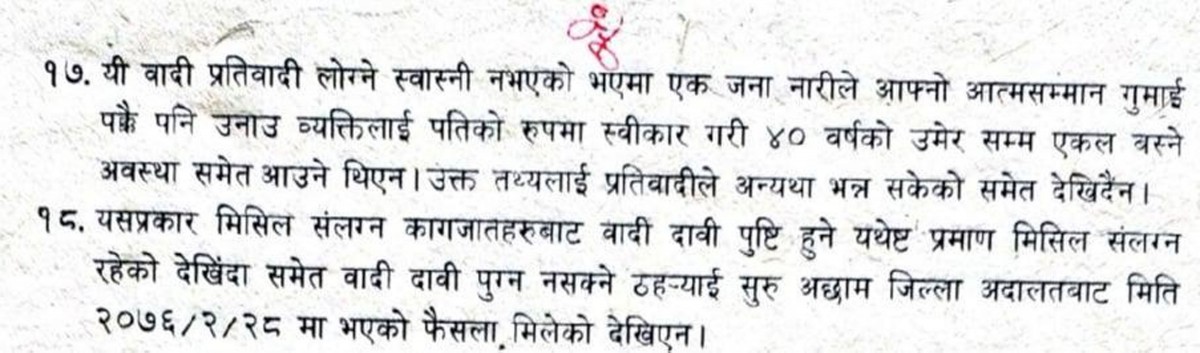 १७. यी वादी प्रतिवादी लोग्ने स्वास्नी नभएको भएमा एक जना नारीले आफ्नो आत्मसम्मान गुमाई
पक्कै पनि उनाउ व्यक्तिलाई पतिको रुपमा स्वीकार गरी ४० वर्षको उमेर सम्म एकल वस्ने
अवस्था समेत आउने थिएन। उक्त तथ्यलाई प्रतिवादीले अन्यथा भन्न सकेको समेत देखिदैंन।
१८. यसप्रकार मिसिल संलग्न कागजातहरुबाट वादी दावी पुष्टि हुने यथेष्ट प्रमाण मिसिल संलग्न
रहेको देखिंदा समेत वादी दावी पुग्न नसक्ने ठहर्‍याई सुरु अछाम जिल्ला अदालतबाट मिति
२०७६/२/२८ मा भएको फैसला मिलेको देखिएन।